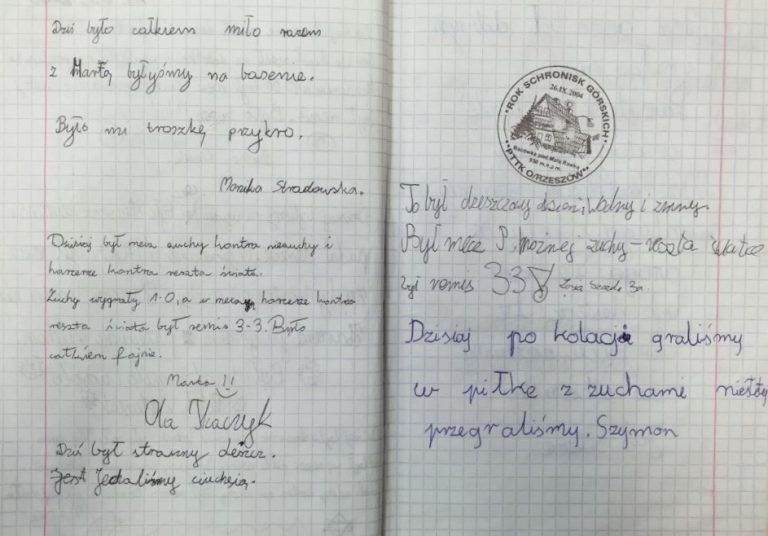 Dziś było całkiem miło razem
z Martą byłyśmy na basenie.
Było mi troszkę przykro.
Monika Stradowska.
Dzisiaj był mecz zuchy kontra niezuchy i
harcerze kontra reszta świata.
Zuchy wygrały 1-0, a w meczu harcerze kontra
reszta świata był remis 3-3. Było
całkiem fajnie.
Marta !!
Ola Tkaczyk
Dziś był straszny deszcz.
Jedliśmy
ROK SCHRONISK GÓRSKICH
26.IX.2004
Bacówka pod Małą Rawką
930 m n.p.m.
PTTK O/RZESZÓW
To był deszczowy dzień, i zimny
Był mecz P. nożnej zuchy - reszta świata
był remis 33
Dzisiaj po kolacji graliśmy
w piłkę z zuchame niestety
przegraliśmy. Szymon